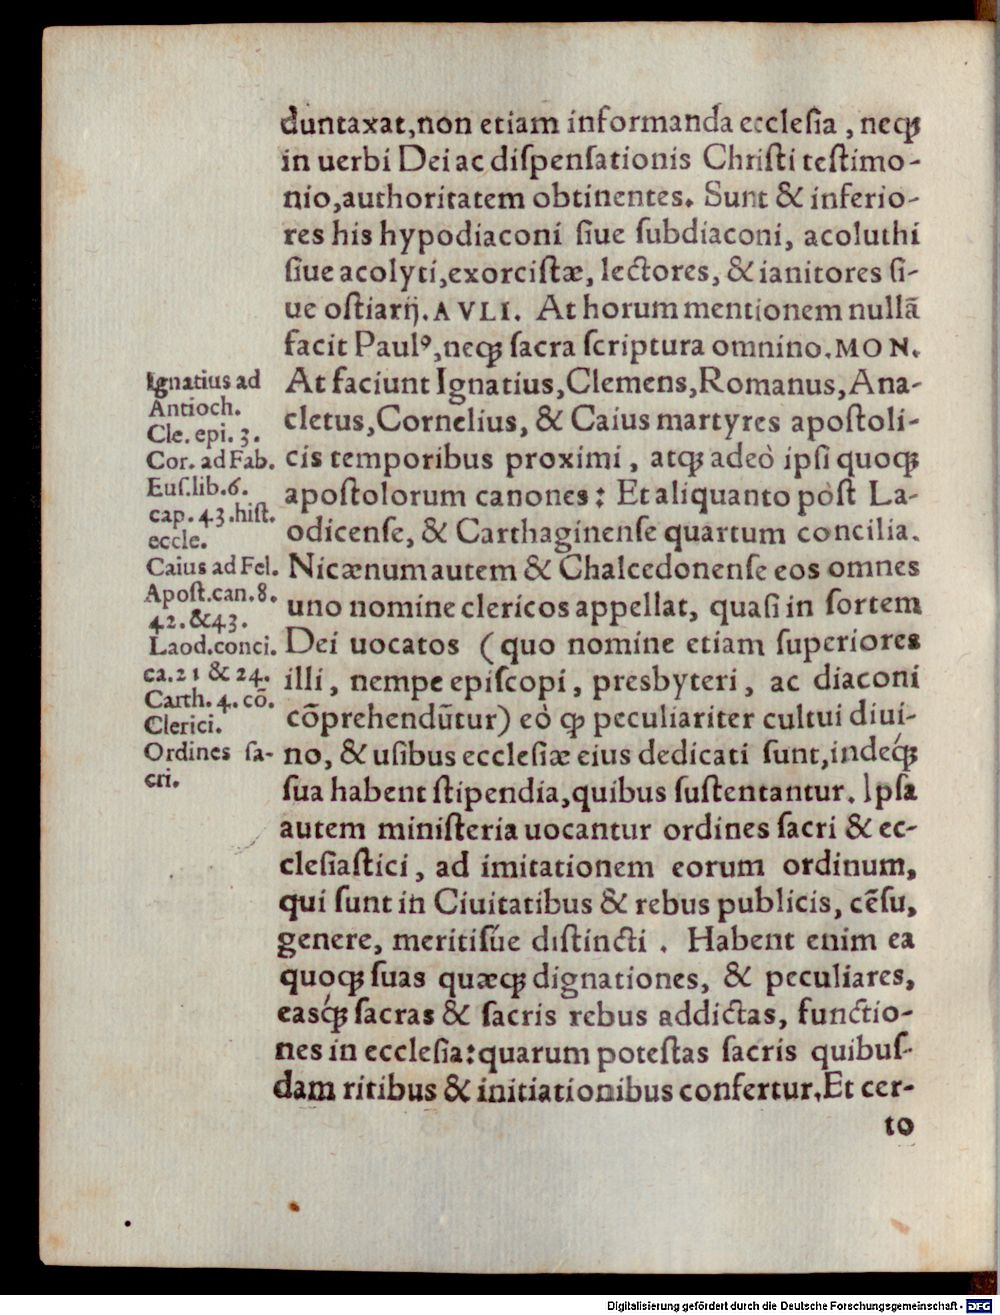 duntaxat,non etiam informanda ecclesia , neqꝫ
in uerbi Dei ac dispensationis Christi testimo-
nio,authoritatem obtinentes. Sunt & inferio-
res his hypodiaconi siue subdiaconi, acoluthi
siue acolyti,exorcistæ, lectores, & ianitores si-
ue ostiarij. AVLI. At horum mentionem nullā
facit Paulꝰ,neqꝫ sacra scriptura omnino. MON.
At faciunt Ignatius,Clemens,Romanus,Ana-
cletus,Cornelius, & Caius martyres apostoli-
cis temporibus proximi , atqꝫ adeò ipsi quoqꝫ
apostolorum canones: Et aliquanto pòst La-
odicense, & Carthaginense quartum concilia.
Nicænum autem & Chalcedonense eos omnes
uno nomine clericos appellat, quasi in sortem
Dei uocatos (quo nomine etiam superiores
illi, nempe episcopi, presbyteri, ac diaconi
cōprehendūtur) eò qꝫ peculiariter cultui diui-
no, & usibus ecclesiæ eius dedicati sunt,indeq́ꝫ
sua habent stipendia,quibus sustentantur. Ipsa
autem ministeria uocantur ordines sacri & ec-
clesiastici, ad imitationem eorum ordinum,
qui sunt in Ciuitatibus & rebus publicis, cēsu,
genere, meritisúe distincti . Habent enim ea
quoqꝫ suas quæqꝫ dignationes, & peculiares,
easq́ꝫ sacras & sacris rebus addictas, functio-
nes in ecclesia:quarum potestas sacris quibus-
dam ritibus & initiationibus confertur.Et cer-
to
Ignatius ad
Antioch.
Cle. epi. 3.
Cor. ad Fab.
Eus.lib.6.
cap. 43.hist.
eccle.
Caius ad Fel.
Apost.can.8.
42.&43.
Laod.conci.
ca.21 & 24.
Carth. 4. cō.
Clerici.
Ordines sa-
cri.
Digitalisierung gefördert durch die Deutsche Forschungsgemeinschaft - DFG